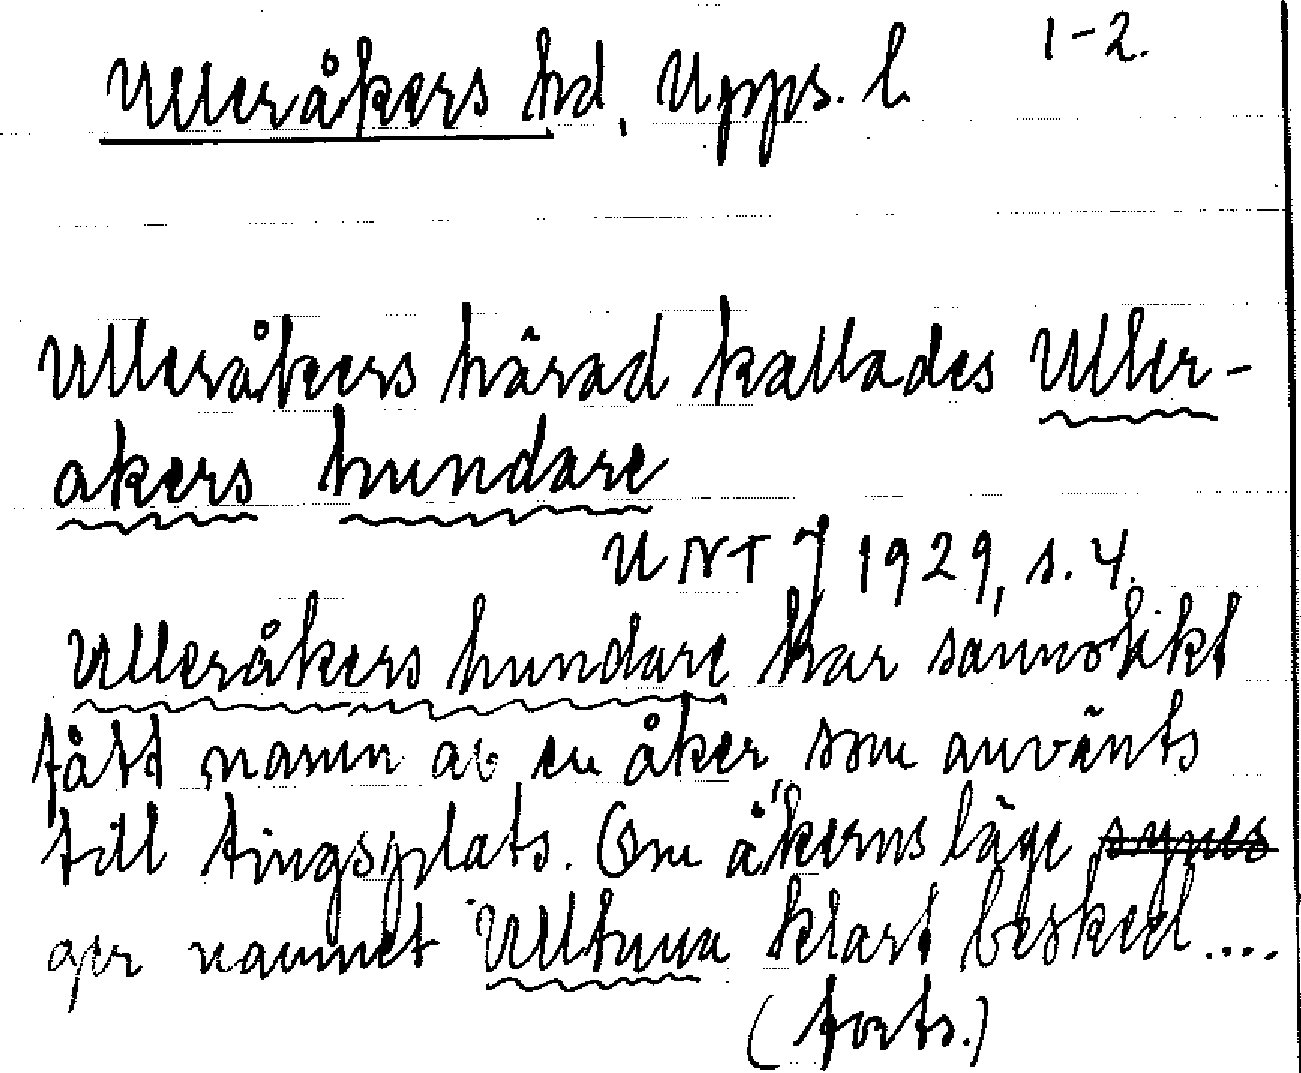 Ulleråkers hd, Upps. l. 1-2.
Ulleråkers härad kallades Uller-
akers hundare
UNT J 1929, s. 4.
Ulleråkers hundare har sannolikt
fått namn av en åker, som använts
till tingsplats. Om åkerns läge synes
ger namnet Ulltuna klart besked....
(forts.)